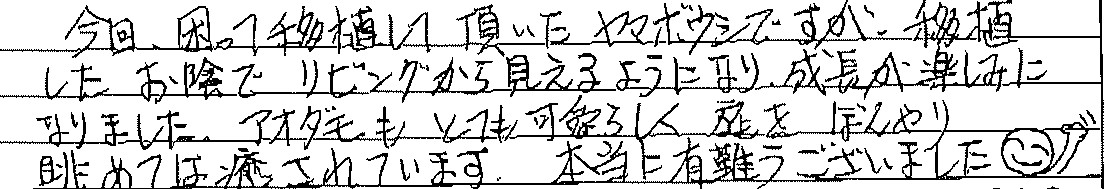 今回、困って移植して頂いたヤマボウシですが、移植
したお陰でリビングから見えるようになり、成長が楽しみに
なりました。アオダモもとても可愛らしく庭をぼんやり
眺めては癒されています。本当に有難うございました